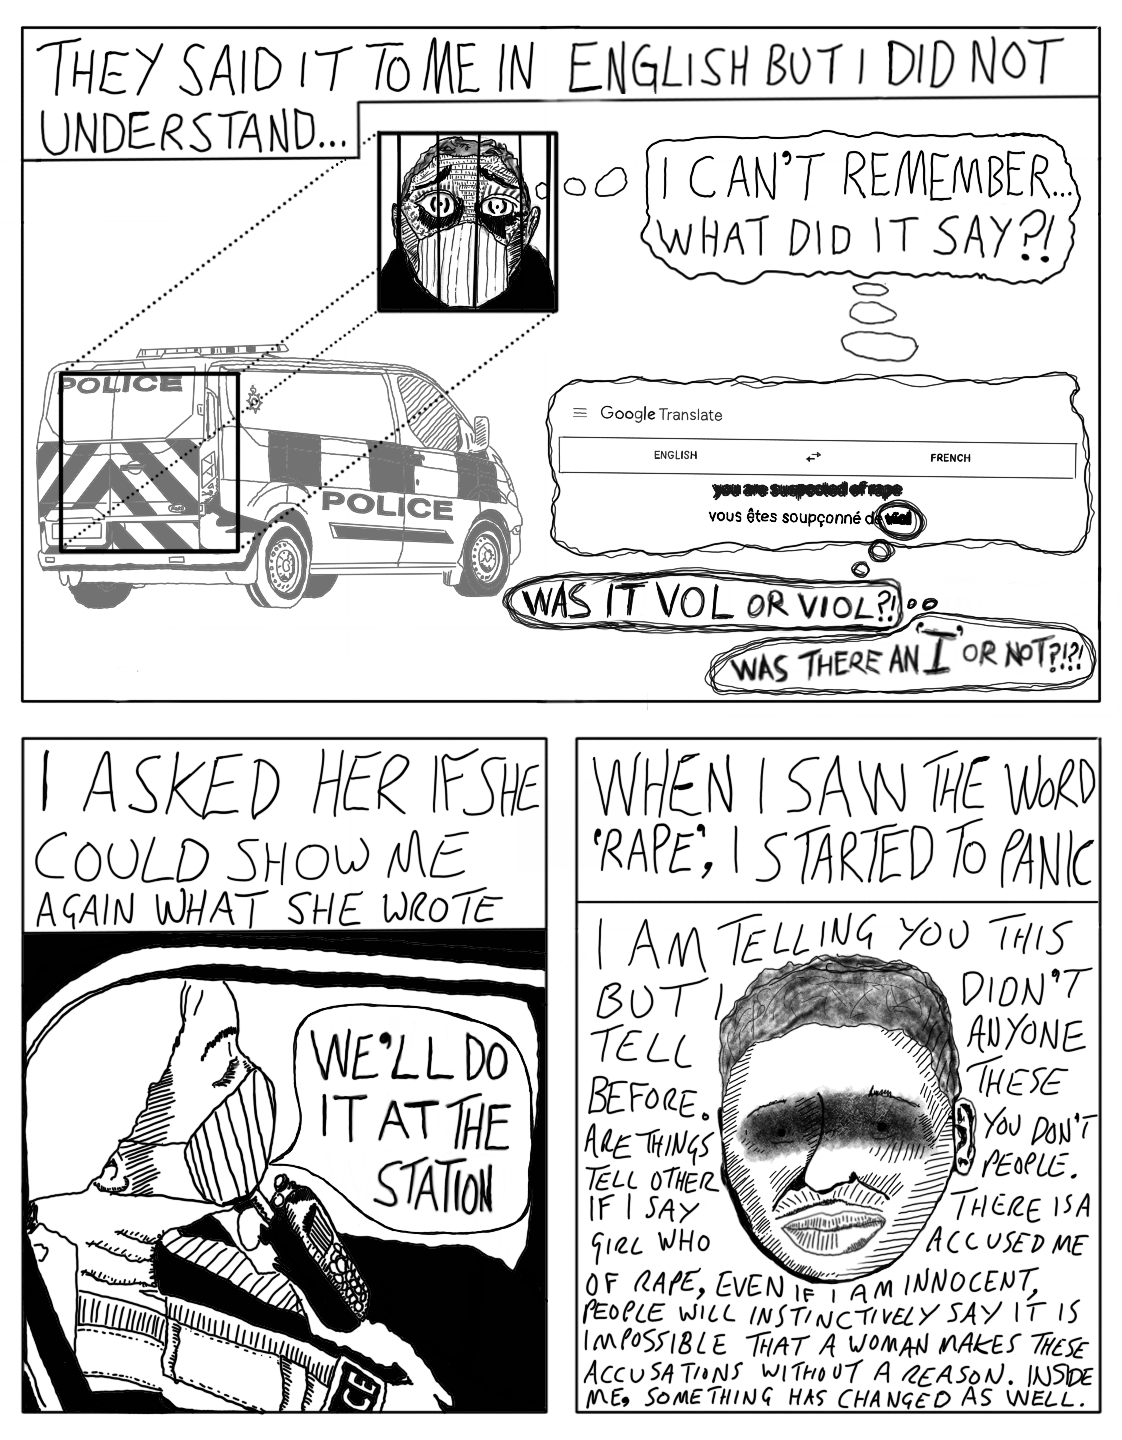 THEY SAID IT TO ME IN ENGLISH BUT I DID NOT
UNDERSTAND...
I CAN'T REMEMBER...
WHAT DID IT SAY?!
POLICE
POLICE
Google Translate
ENGLISH
FRENCH
you are suspected of rape
vous êtes soupçonné de viol
WAS IT VOL OR VIOL?!
WAS THERE AN 'I' OR NOT?!?!
I ASKED HER IF SHE
COULD SHOW ME
AGAIN WHAT SHE WROTE
WE'LL DO
IT AT THE
STATION
CE
WHEN I SAW THE WORD
'RAPE', I STARTED TO PANIC
I AM TELLING YOU THIS
BUT I DIDN'T
TELL ANYONE
BEFORE. THESE
ARE THINGS YOU DON'T
TELL OTHER PEOPLE.
IF I SAY THERE IS A
GIRL WHO ACCUSED ME
OF RAPE, EVEN IF I AM INNOCENT,
PEOPLE WILL INSTINCTIVELY SAY IT IS
IMPOSSIBLE THAT A WOMAN MAKES THESE
ACCUSATIONS WITHOUT A REASON. INSIDE
ME, SOMETHING HAS CHANGED AS WELL.